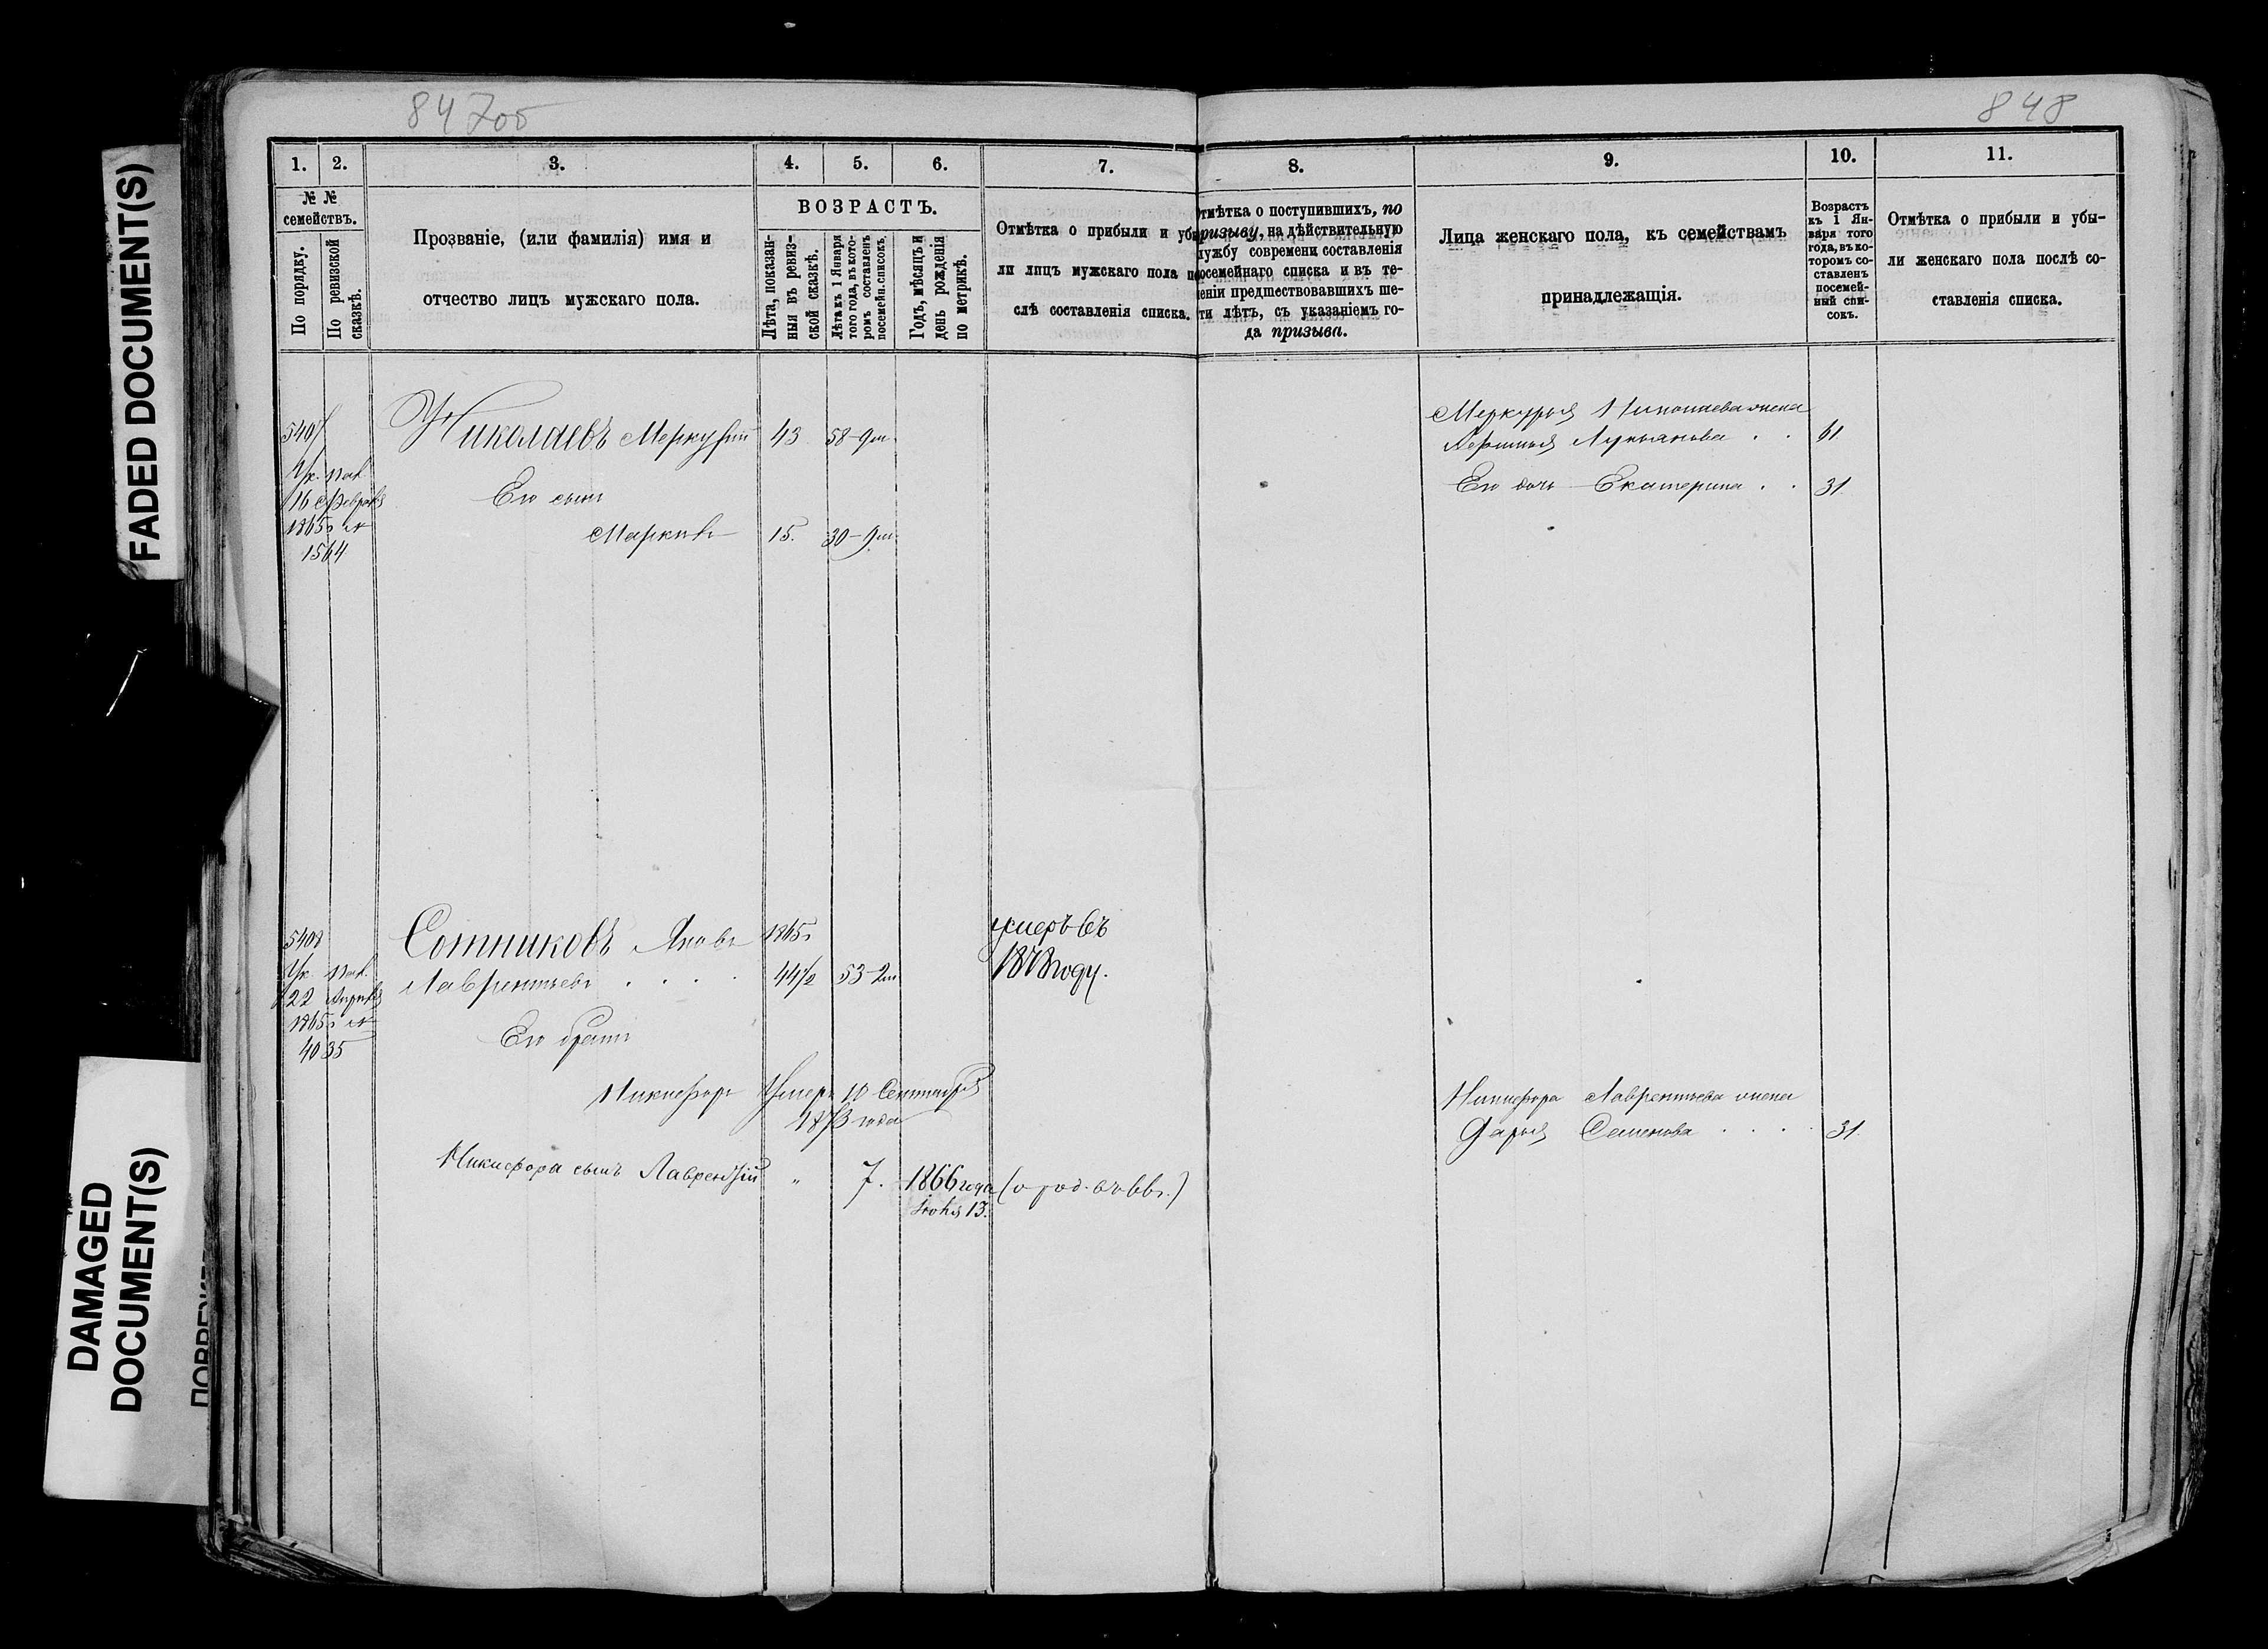 847об
848
FADED DOCUMENT(S)
DAMAGED
DOCUMENT(S)
1. 2. 3. 4. 5. 6. 7. 8. 9. 10. 11.
№ №
семействъ.
По порядку.
По ревизской
сказкѣ.
Прозваніе, (или фамилія) имя и
отчество лицъ мужскаго пола.
ВОЗРАСТЪ.
Лѣта, показан-
ныя въ ревиз-
ской сказкѣ.
Лѣта къ 1 Января
того года, въ кото-
ромъ составленъ
посемейн. списокъ.
Годъ, мѣсяцъ и
день рожденія
по метрикѣ.
Отмѣтка о прибыли и убы
ли лицъ мужскаго пола по
слѣ составленія списка.
Отмѣтка о поступившихъ, по
призыву, на дѣйствительную
службу современи составленія
посемейнаго списка и въ те-
ченіи предшествовавшихъ ше-
сти лѣтъ, съ указаніемъ го-
да призыва.
Лица женскаго пола, къ семействамъ
принадлежащія.
Возрастъ
къ 1 Ян-
варя того
года, въ ко-
торомъ со-
ставленъ
посемей-
ный спи-
сокъ.
Отмѣтка о прибыли и убы-
ли женскаго пола послѣ со-
ставленія списка.
5407
Ук. Пал.
16 Февраля
1865г №
1564
Николаевъ Меркурій 43 58-9м
Его сынъ
Маркелъ 15. 30-9м
Меркурья Николаева жена
Лукьянова . . 61.
Его дочь Екатерина . . 31
5408
Ук Пал.
22 Апрѣля
1865г №
4035
Сотниковъ Яковъ 1865г
Лаврентьевъ . . . 44½ 53-2м
умеръ въ
1878 году.
Его братъ
Никифоръ Умеръ 10 Сентября
1873 года
Никифора сынъ Лаврентій „ 7. 1866 года (о род. въ 66г.)
Іюня 13.
Никифора Лаврентьева жена
Дарья Семенова . . . . 31.